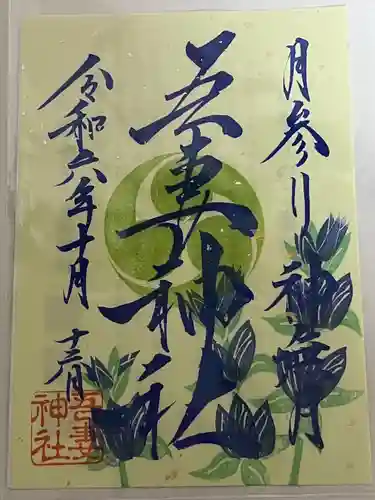 月参り 神無月
吾妻神社
令和六年十月
十三日
吾妻
神社